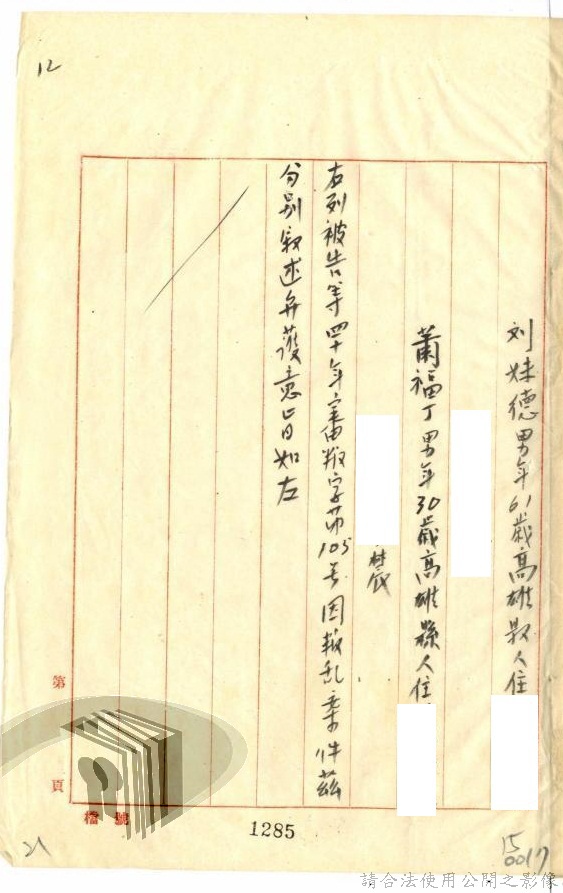 12
刘妹德男年61歲高雄县人住
蕭福丁男年30歲高雄縣人住
農
右列被告等四十年審叛字第105号因叛乱案件茲
分別叙述弁護意旨如左
第
頁
檔號
1285
21
15
0017
請合法使用公開之影像